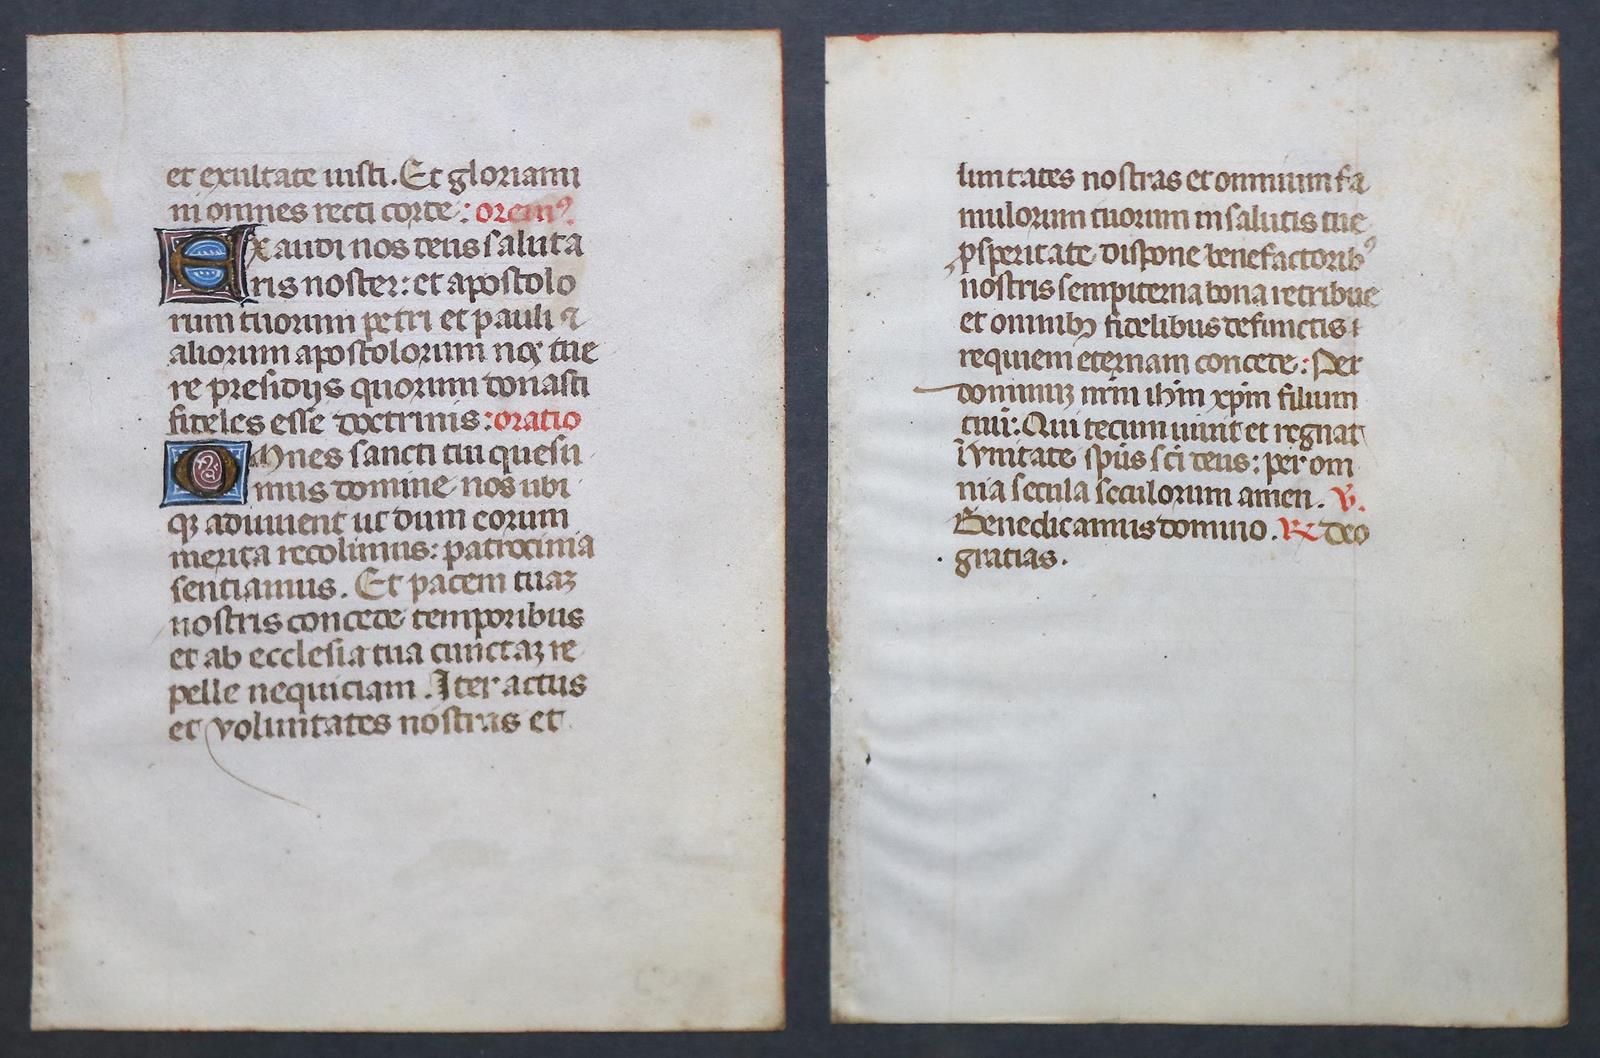 et exultate iusti. Et gloriami
ni omnes recti corde: orem⁹.
Exaudi nos deus saluta
ris noster: et apostolo
rum tuorum petri et pauli ⁊
aliorum apostolorum nos tue
re presidijs quorum donasti
fideles esse doctrinis: oratio
OMnes sancti tui quesu
mus domine nos ubi
qꝫ adiuuent ut dum eorum
merita recolimus: patrocinia
sentiamus. Et pacem tuaꝫ
nostris concede temporibus
et ab ecclesia tua cunctaꝫ re
pelle nequiciam. Iter actus
et voluntates nostras et
luntates nostras et omnium fa
mulorum tuorum in salutis tue
ꝓsperitate dispone benefactorib⁹
nostris sempiterna bona retribue
et omnibꝫ fidelibus defunctis
requiem eternam concede: Per
dominuꝫ nr̄m ih̄m xp̄m filium
tuū: Qui tecum uiuit et regnat
ī vnitate sp̄us sc̄i deus: per om
nia secula seculorum amen. ℣.
Benedicamus domino. ℟ deo
gratias.